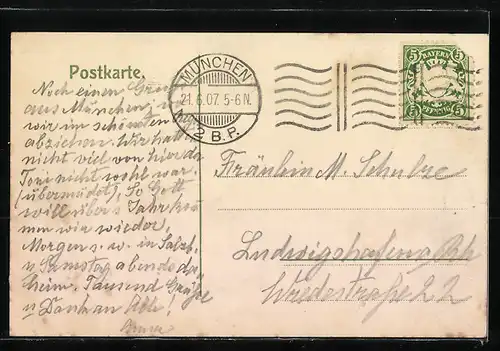 Postkarte.
MÜNCHEN
21.6.07. 5-6 N.
2 B.P.
5 BAYERN 5
5 PFENNIG 5
Noch einen Gruß
aus München,
wir im schönsten
abziehen. Wir hatt
nicht viel von hier da
Toni nicht wohl war.
(übermüdet), So Gott
will übers Jahr kom
men wir wieder,
Morgen in Salzb.
u Samstag abends da
heim. Tausend Grüße
u Dank an Alle,
Fräulein M. Schulze
Ludwigshafen a Rh
Wredestraße 22